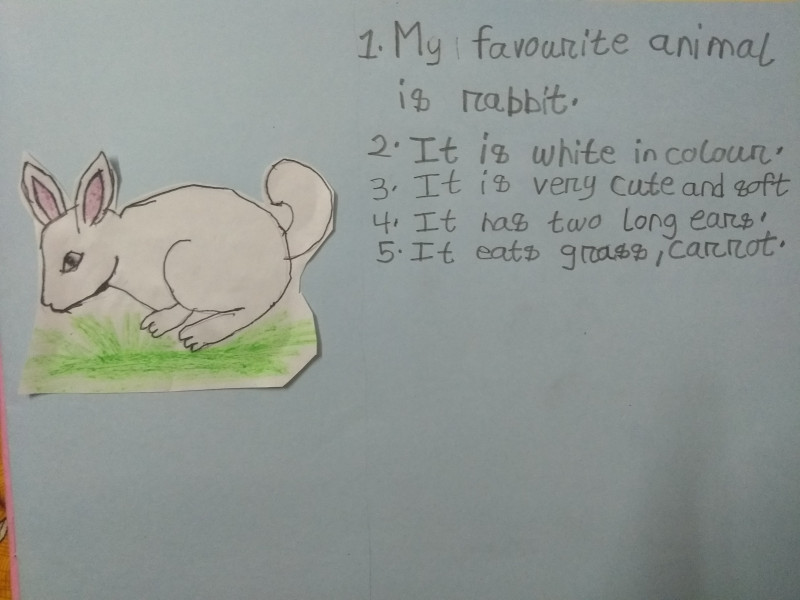 1. My favourite animal
is rabbit.
2. It is white in colour.
3. It is very cute and soft
4. It has two long ears.
5. It eats grass, carrot.